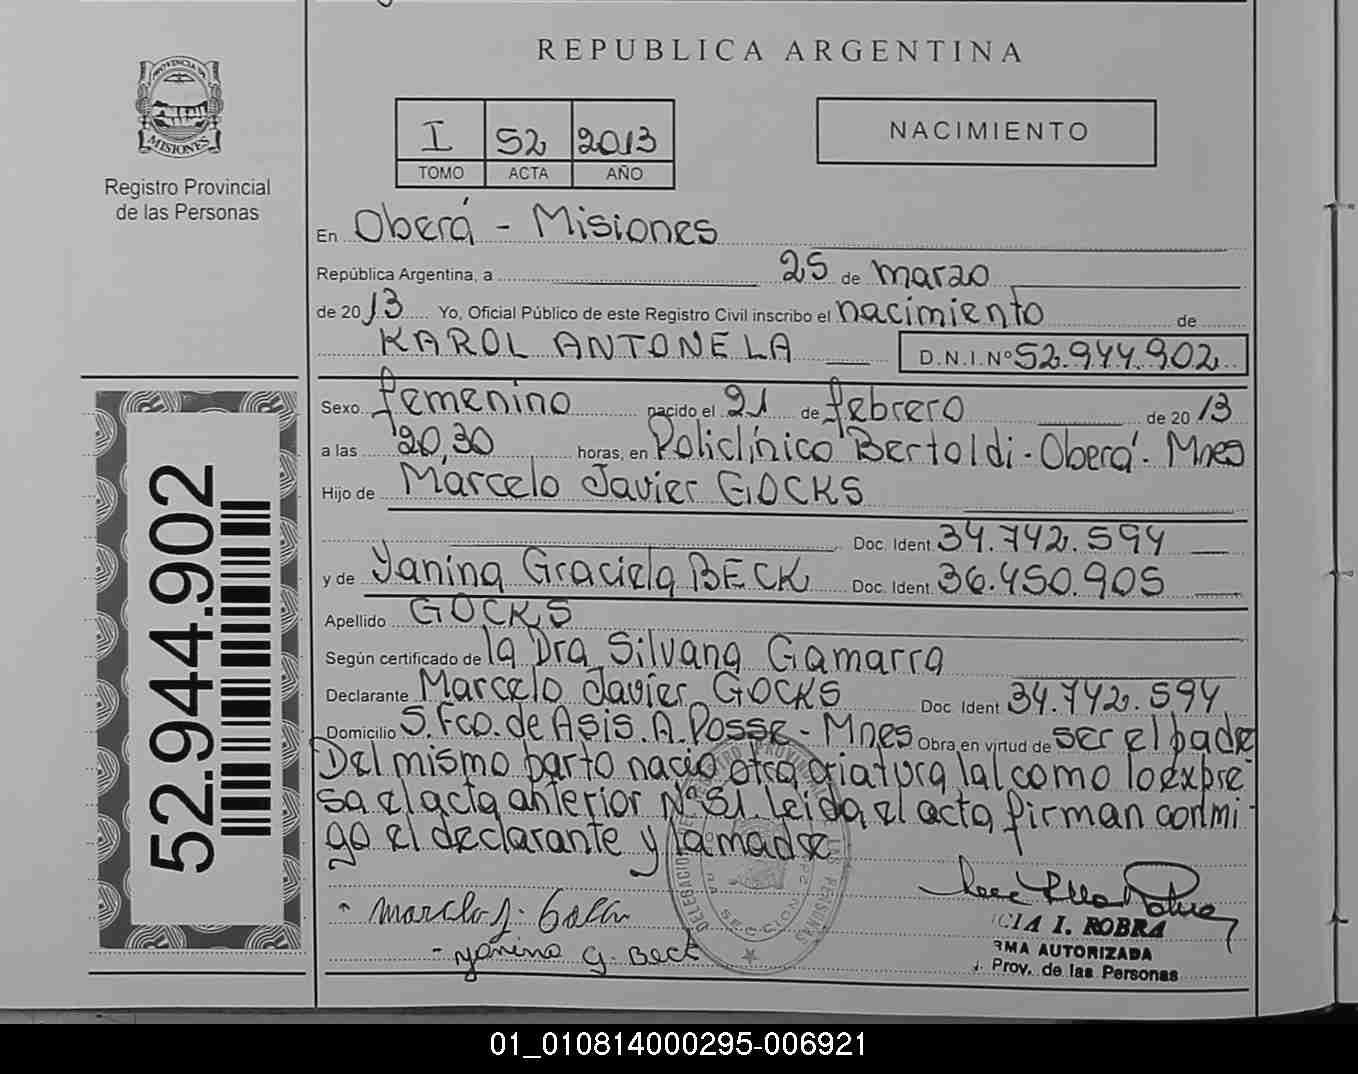 REPUBLICA ARGENTINA
PROVINCIA DE
MISIONES
Registro Provincial
de las Personas
I 52 2013
TOMO ACTA AÑO
NACIMIENTO
En Oberá - Misiones
República Argentina, a 25 de marzo
de 2013 Yo, Oficial Público de este Registro Civil inscribo el nacimiento de
KAROL ANTONELA D.N.I.Nº 52.944.902
Sexo femenino nacido el 21 de febrero de 2013
a las 20,30 horas, en Policlínico Bertoldi - Oberá - Mnes
Hijo de Marcelo Javier GOCKS
Doc. Ident. 34.742.594
y de Yanina Graciela BECK Doc. Ident. 36.450.905
Apellido GOCKS
Según certificado de la Dra Silvana Gamarra
Declarante Marcelo Javier GOCKS Doc Ident 34.742.594
Domicilio S. Fco. de Asis. A. Posse - Mnes Obra en virtud de ser el padre
Del mismo parto nacio otra criatura tal como lo expre
sa el acta anterior Nº 51. Leida el acta firman conmi-
go el declarante y la madre
Marcelo J.
- Yanina G. Beck
CIA I. ROBRA
RMA AUTORIZADA
. Prov. de las Personas
52.944.902
01_010814000295-006921